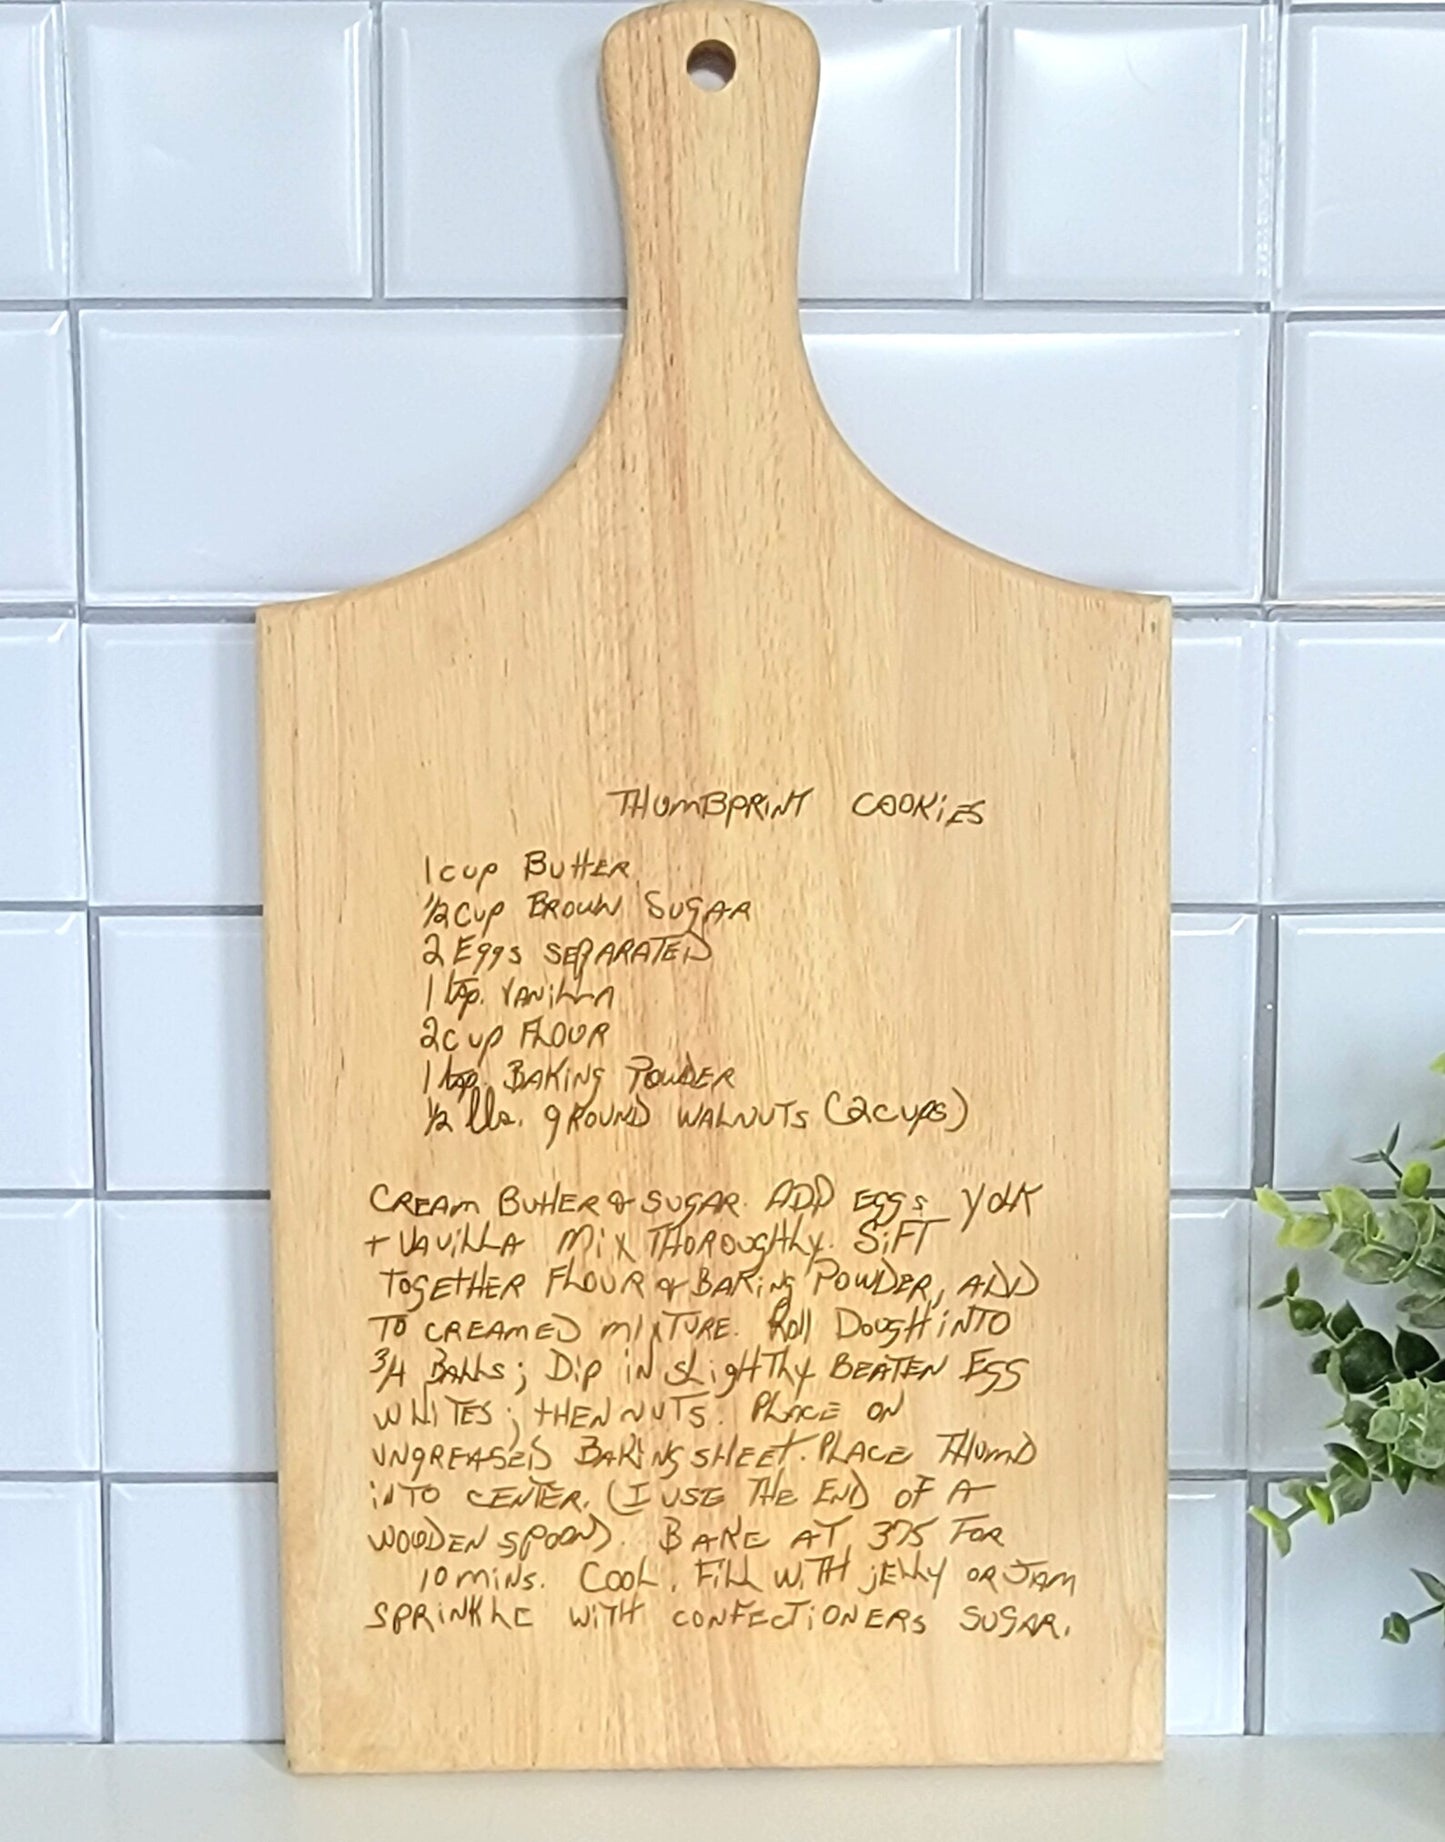 THUMBPRINT COOKIES
1 cup BUTTER
1/2 cup BROWN SUGAR
2 Eggs SEPARATED
1 tsp. VANILLA
2 cup FLOUR
1 tsp. BAKING POWDER
1/2 lbs. gROUND WALNUTS (2 cups)
CREAM BUTTER & SUGAR. ADD EGGS YOLK
+ VANILLA MIX THOROUGHLY. SIFT
TOGETHER FLOUR & BAKING POWDER, ADD
TO CREAMED MIXTURE. Roll DOUGH INTO
3/4 BALLS; DIP IN SLIGHTLY BEATEN EGG
WHITES; THEN NUTS. PLACE ON
UNGREASED BAKING SHEET. PLACE THUMB
INTO CENTER. (I USE THE END OF A
WOODEN SPOON). BAKE AT 375 FOR
10 MINS. COOL. FILL WITH JELLY OR JAM
SPRINKLE WITH CONFECTIONERS SUGAR.